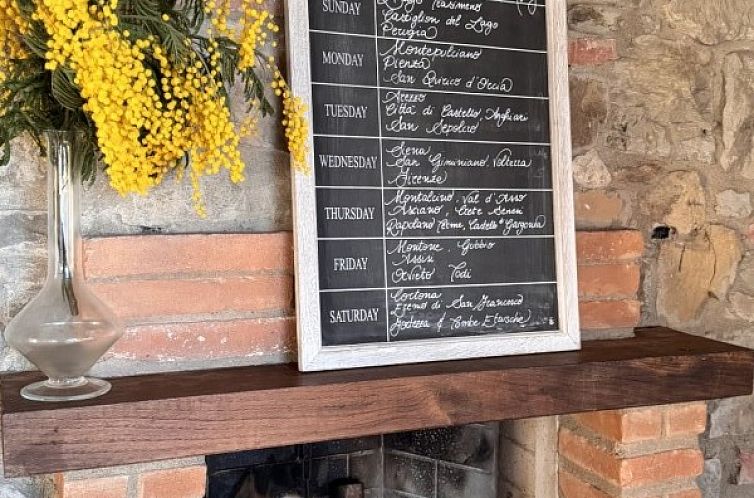 SUNDAY
Lago Trasimeno
Castiglion del Lago
Perugia
MONDAY
Montepulciano
Pienza
San Quirico d'Orcia
TUESDAY
Arezzo
Città di Castello, Anghiari
San Sepolcro
WEDNESDAY
Siena
San Gimignano, Volterra
Firenze
THURSDAY
Montalcino, Val d'Arno
Asciano, Crete Senesi
Rapolano Terme, Castello Gargonza
FRIDAY
Montone, Gubbio
Assisi
Orvieto Todi
SATURDAY
Cortona
Eremo di San Francesco
Fortezza & Tombe Etrusche